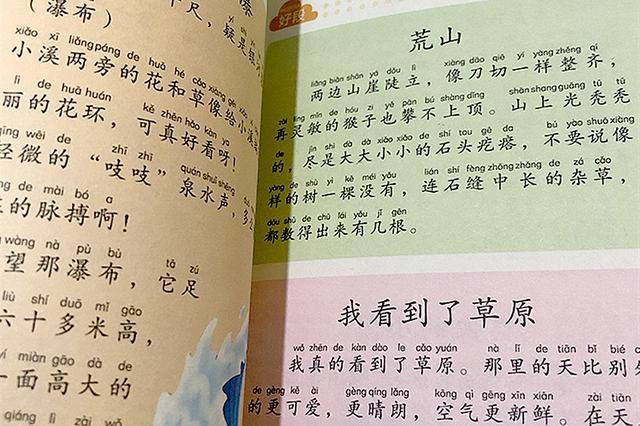 （瀑布）
chǐ yí shì
尺，疑是
xiǎo xī liǎng páng de huā hé cǎo xiàng gěi xiǎo
小溪两旁的花和草像给小
lì de huā huán kě zhēn hǎo kàn ya
丽的花环，可真好看呀！
qīng wēi de zhī zhī quán shuǐ shēng
轻微的“吱吱”泉水声，
de mài bó a
的脉搏啊！
wàng nà pù bù tā zú
望那瀑布，它足
liù shí duō mǐ gāo
六十多米高，
yí miàn gāo dà de
一面高大的
qiáng lì zài
好段
荒山
liǎng biān shān yá dǒu lì xiàng dāo qiē yí yàng zhěng qí
两边山崖陡立，像刀切一样整齐，
zài líng mǐn de hóu zi yě pān bú shàng dǐng shān shang guāng tū tū
再灵敏的猴子也攀不上顶。山上光秃秃
de jìn shì dà dà xiǎo xiǎo de shí tou gē da bú yào shuō xiàng
的，尽是大大小小的石头疙瘩，不要说像
yàng de shù yì kē méi yǒu lián shí fèng zhōng zhǎng de zá cǎo
样的树一棵没有，连石缝中长的杂草，
dōu shǔ de chū lái yǒu jǐ gēn
都数得出来有几根。
我看到了草原
wǒ zhēn de kàn dào le cǎo yuán nà lǐ de tiān bǐ bié
我真的看到了草原。那里的天比别处
de gèng kě ài gèng qíng lǎng kōng qì gèng xīn xiān zài tiān
的更可爱，更晴朗，空气更新鲜。在天